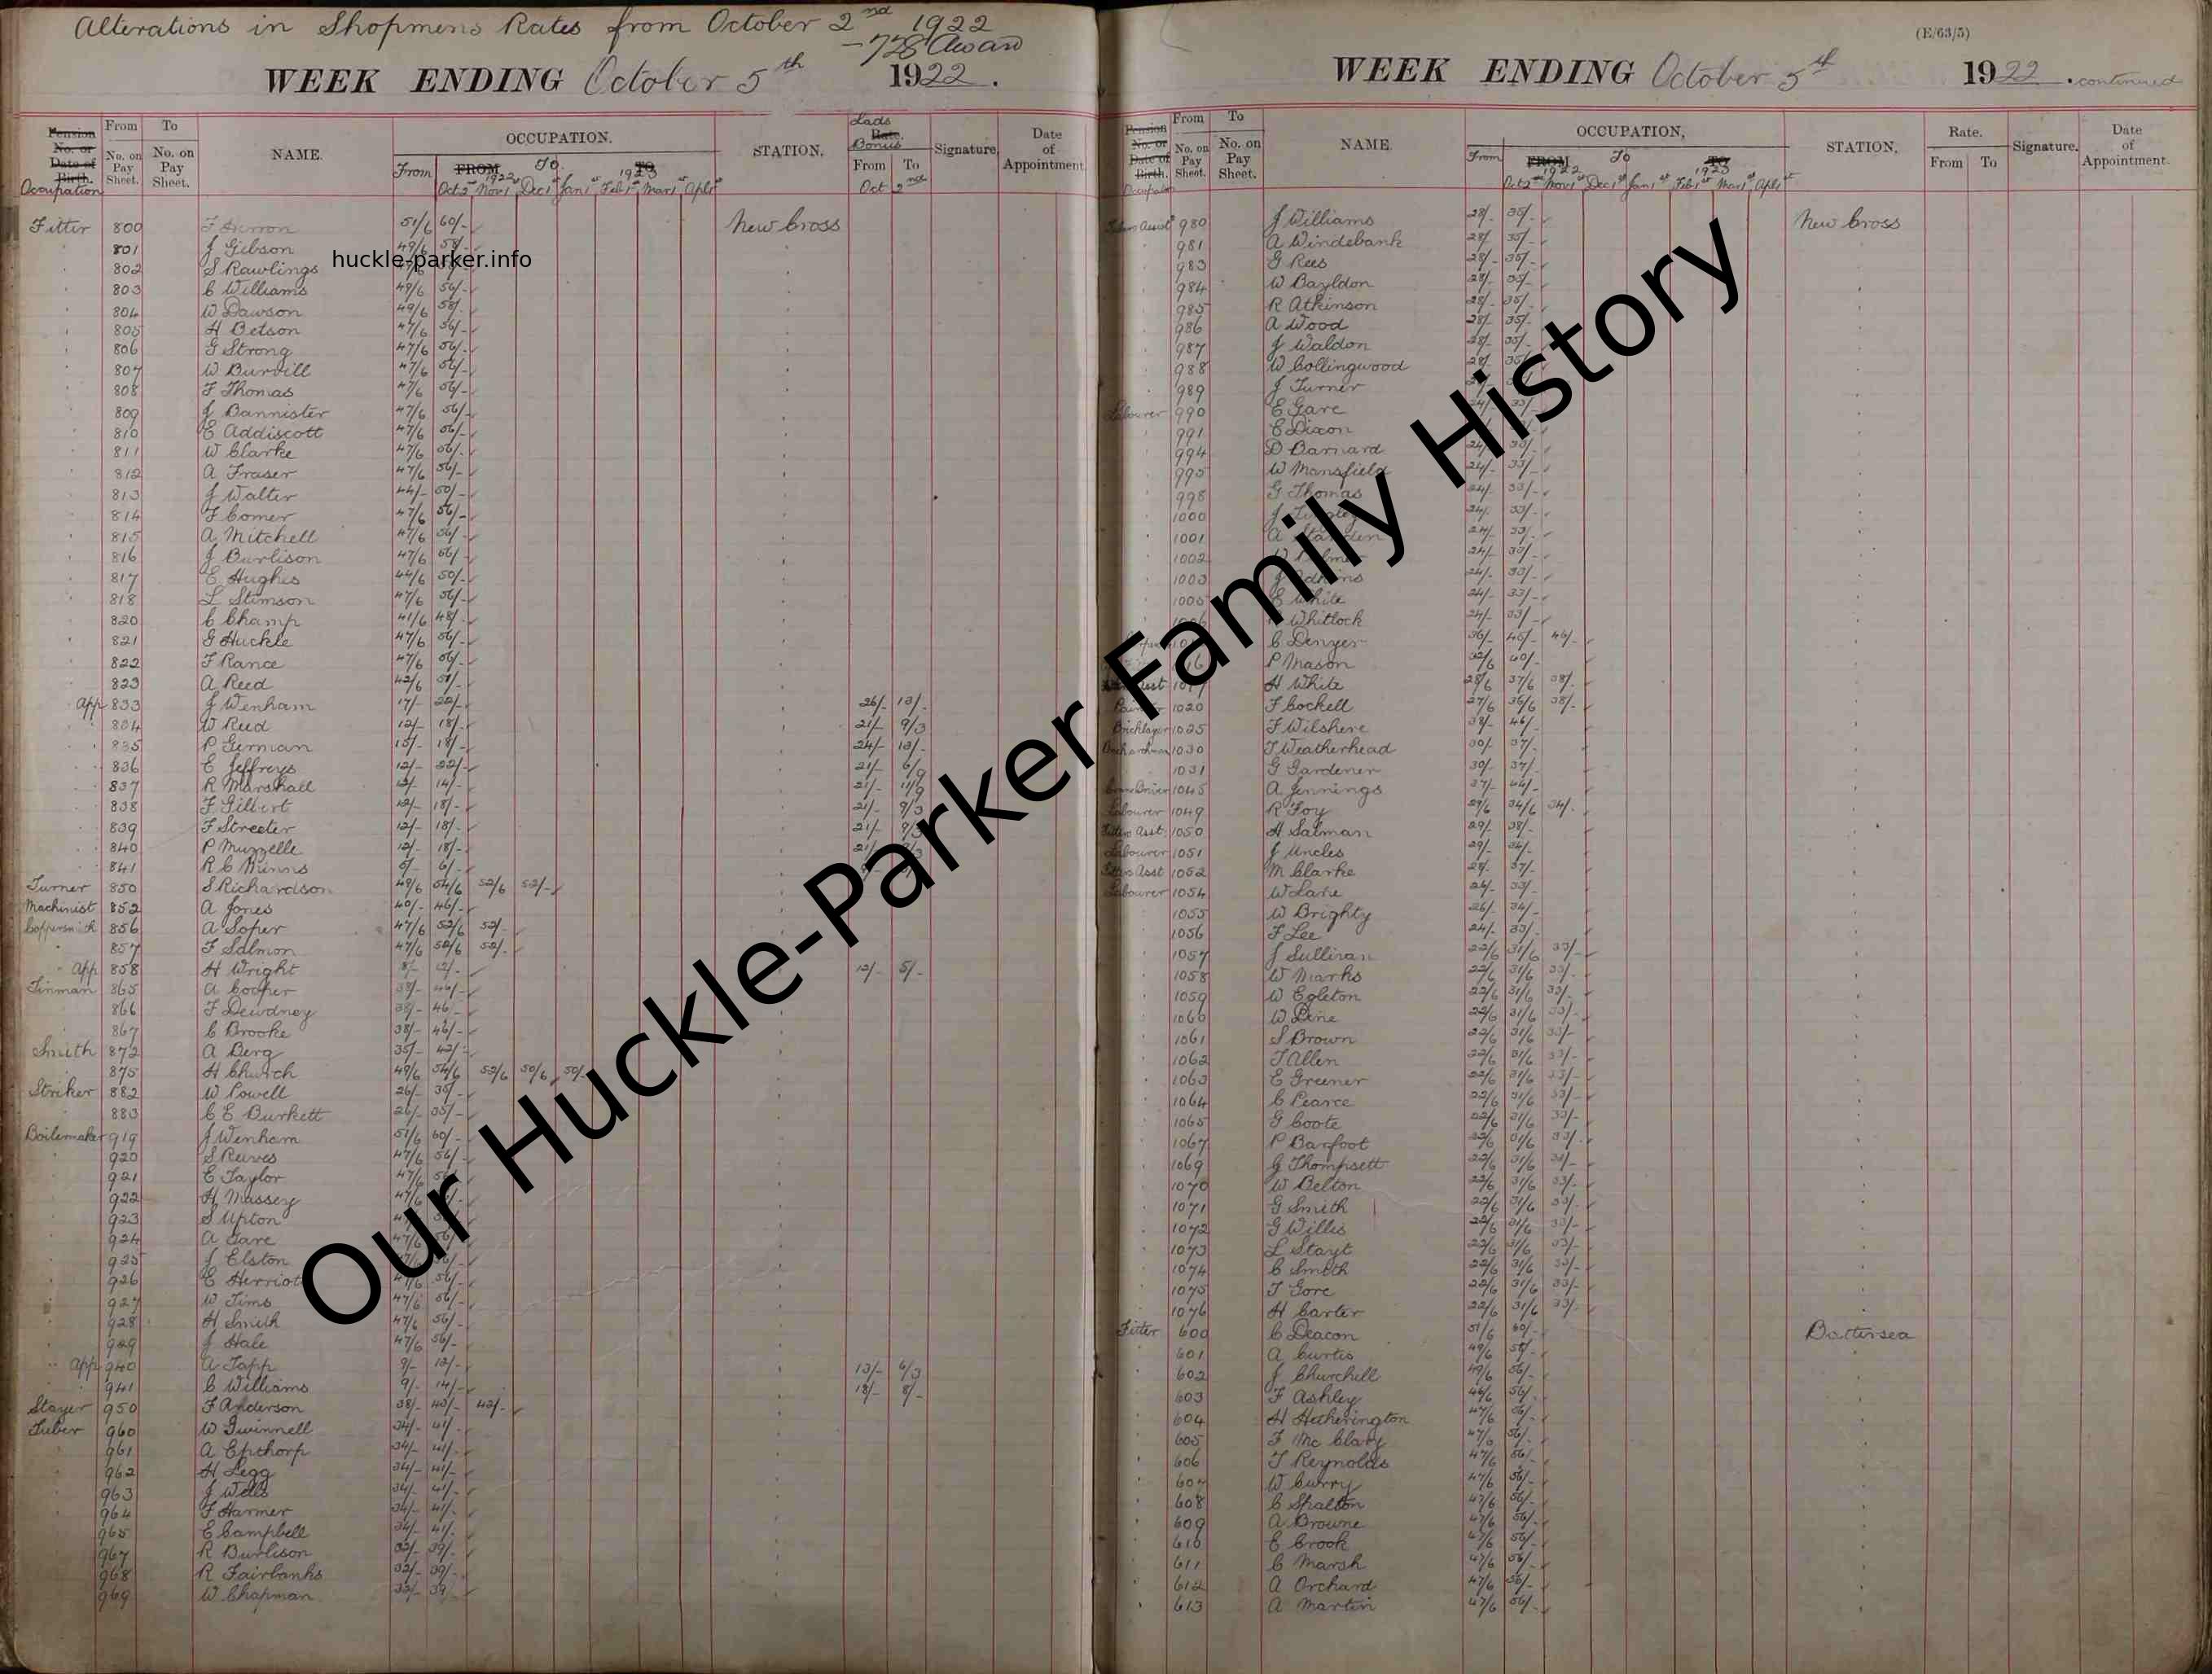 Alterations in Shopmens Rates from October 2nd 1922
- 728 Award
WEEK ENDING October 5th 1922.
Pension No. or Date of Birth. Occupation
From No. on Pay Sheet.
To No. on Pay Sheet.
NAME.
OCCUPATION.
From FROM To TO
1922 1923
Oct 2nd Nov 1st Dec 1st Jan 1st Feb 1st Mar 1st Apl 1st
STATION.
Lads Rate. Bonus
From To
Oct 2nd
Signature.
Date of Appointment.
huckle-parker.info
Our Huckle-Parker Family History
Fitter 800 51/6 60/- New Cross
801 J Gibson 49/6 58/-
802 S Rawlings
803 C Williams 49/6 56/-
804 W Dawson 49/6 58/-
805 H Betson 47/6 56/-
806 G Strong 47/6 56/-
807 W Burvill 47/6 56/-
808 F Thomas 47/6 56/-
809 J Bannister 47/6 56/-
810 E Addiscott 47/6 56/-
811 W Clarke 47/6 56/-
812 A Fraser 47/6 56/-
813 J Walter 44/- 50/-
814 F Comer 47/6 56/-
815 A Mitchell 47/6 56/-
816 J Burlison 47/6 56/-
817 E Hughes 44/6 50/-
818 L Stimson 47/6 56/-
820 C Champ 41/6 48/-
821 G Huckle 47/6 56/-
822 F Rance 47/6 56/-
823 A Reed 42/6 51/-
App 833 J Wenham 17/- 22/- 26/- 13/-
834 W Reed 12/- 18/- 21/- 9/3
835 P German 15/- 18/- 24/- 13/-
836 E Jeffreys 12/- 22/- 21/- 6/9
837 R Marshall 12/- 14/- 21/- 11/9
838 F Gilbert 12/- 18/- 21/- 9/3
839 F Streeter 12/- 18/- 21/- 9/3
840 P Muzzelle 12/- 18/- 21/-
841 R C Minns 5/- 6/-
Turner 850 S Richardson 49/6 54/6 52/6 52/-
Machinist 852 A Jones 40/- 46/-
Coppersmith 856 A Soper 47/6 52/6 52/-
857 F Salmon 47/6 52/6 52/-
App 858 H Wright 8/- 12/- 12/- 5/-
Tinman 865 A Cooper 38/- 46/-
866 F Dewdney 38/- 46
867 C Brooke 38/- 46/-
Smith 872 A Berg 35/- 42/-
875 H Church 49/6 54/6 52/6 50/6 50/-
Striker 882 W Powell 26/- 35/-
883 C E Burkett 26/- 35/-
Boilermaker 919 J Wenham 51/6 60/-
920 S Reeves 47/6 56/-
921 E Taylor 47/6
922 H Massey 47/6
923 S Upton
924 A Gare 47/6
925 J Elston
926 E Herriot 56/-
927 W Tims 47/6 56/-
928 H Smith 47/6 56/-
929 J Hale 47/6 56/-
App 940 A Tapp 9/- 12/- 13/- 6/3
941 C Williams 9/- 14/- 18/- 8/-
Stayer 950 F Anderson 38/- 43/- 42/-
Tuber 960 W Gwinnell 34/- 41/-
961 A Epthorp 34/- 41/-
962 H Legg 34/- 41/-
963 J Wells 34/- 41/-
964 F Harmer 34/- 41/-
965 E Campbell 34/- 41/-
967 R Burlison 32/- 39/-
968 R Fairbanks 32/- 39/-
969 W Chapman 32/- 39/-
(E/63/5)
WEEK ENDING October 5th 1922. continued
Pension No. or Date of Birth. Occupation
From No. on Pay Sheet.
To No. on Pay Sheet.
NAME.
OCCUPATION,
From FROM To TO
1922 1923
Oct 2nd Nov 1st Dec 1st Jan 1st Feb 1st Mar 1st Apl 1st
STATION,
Rate.
From To
Signature.
Date of Appointment.
980 J Williams 28/- 35/- New Cross
981 A Windebank 28/- 35/-
983 G Rees 28/- 35/-
984 W Bayldon 28/- 35/-
985 R Atkinson 28/- 35/-
986 A Wood 28/- 35/-
987 J Waldon 28/- 35/-
988 W Collingwood 28/- 35/-
989 J Turner
Labourer 990 E Gare 24/- 33/-
991 E Dixon
994 D Barnard 24/- 33/-
995 W Mansfield 24/- 33/-
998 G Thomas 24/- 33/-
1000 J 24/- 33/-
1001 A 24/- 33/-
1002 24/- 33/-
1003 24/- 33/-
1005 E White 24/- 33/-
Whitlock 24/- 33/-
C Denyer 36/- 45/- 46/-
P Mason 32/6 40/-
H White 28/6 37/6 38/-
1020 F Cockell 27/6 36/6 38/-
Bricklayer 1025 F Wilshere 38/- 46/-
1030 T Weatherhead 30/- 37/-
1031 G Gardener 30/- 37/-
Crane Driver 1045 A Jennings 37/- 44/-
Labourer 1049 R Foy 29/6 34/6 34/-
Fitters Asst 1050 H Salman 29/- 38/-
Labourer 1051 J Uncles 29/- 34/-
Fitters Asst 1052 M Clarke 28/- 37/-
Labourer 1054 W Lane 24/- 33/-
1055 W Brighty 26/- 34/-
1056 F Lee 24/- 33/-
1057 J Sullivan 22/6 31/6 33/-
1058 W Marks 22/6 31/6 33/-
1059 W Egleton 22/6 31/6 33/-
1060 W Pine 22/6 31/6 33/-
1061 S Brown 22/6 31/6 33/-
1062 T Allen 22/6 31/6 33/-
1063 E Greener 22/6 31/6 33/-
1064 C Pearce 22/6 31/6 33/-
1065 G Coote 22/6 31/6 33/-
1067 P Barfoot 22/6 31/6 33/-
1069 G Thompsett 22/6 31/6 33/-
1070 W Belton 22/6 31/6 33/-
1071 G Smith 22/6 31/6 33/-
1072 G Willis 22/6 31/6 33/-
1073 L Stayt 22/6 31/6 33/-
1074 C Smith 22/6 31/6 33/-
1075 T Gore 22/6 31/6 33/-
1076 H Carter 22/6 31/6 33/-
Fitter 600 C Deacon 51/6 60/- Battersea
601 A Curtis 49/6 58/-
602 J Churchill 49/6 56/-
603 F Ashley 46/6 56/-
604 H Hetherington 47/6 56/-
605 F Mc Clary 47/6 56/-
606 T Reynolds 47/6 56/-
607 W Curry 47/6 56/-
608 C Spalton 47/6 56/-
609 A Browne 47/6 56/-
610 E Crook 47/6 56/-
611 C Marsh 47/6 56/-
612 A Orchard 47/6 56/-
613 A Martin 47/6 56/-